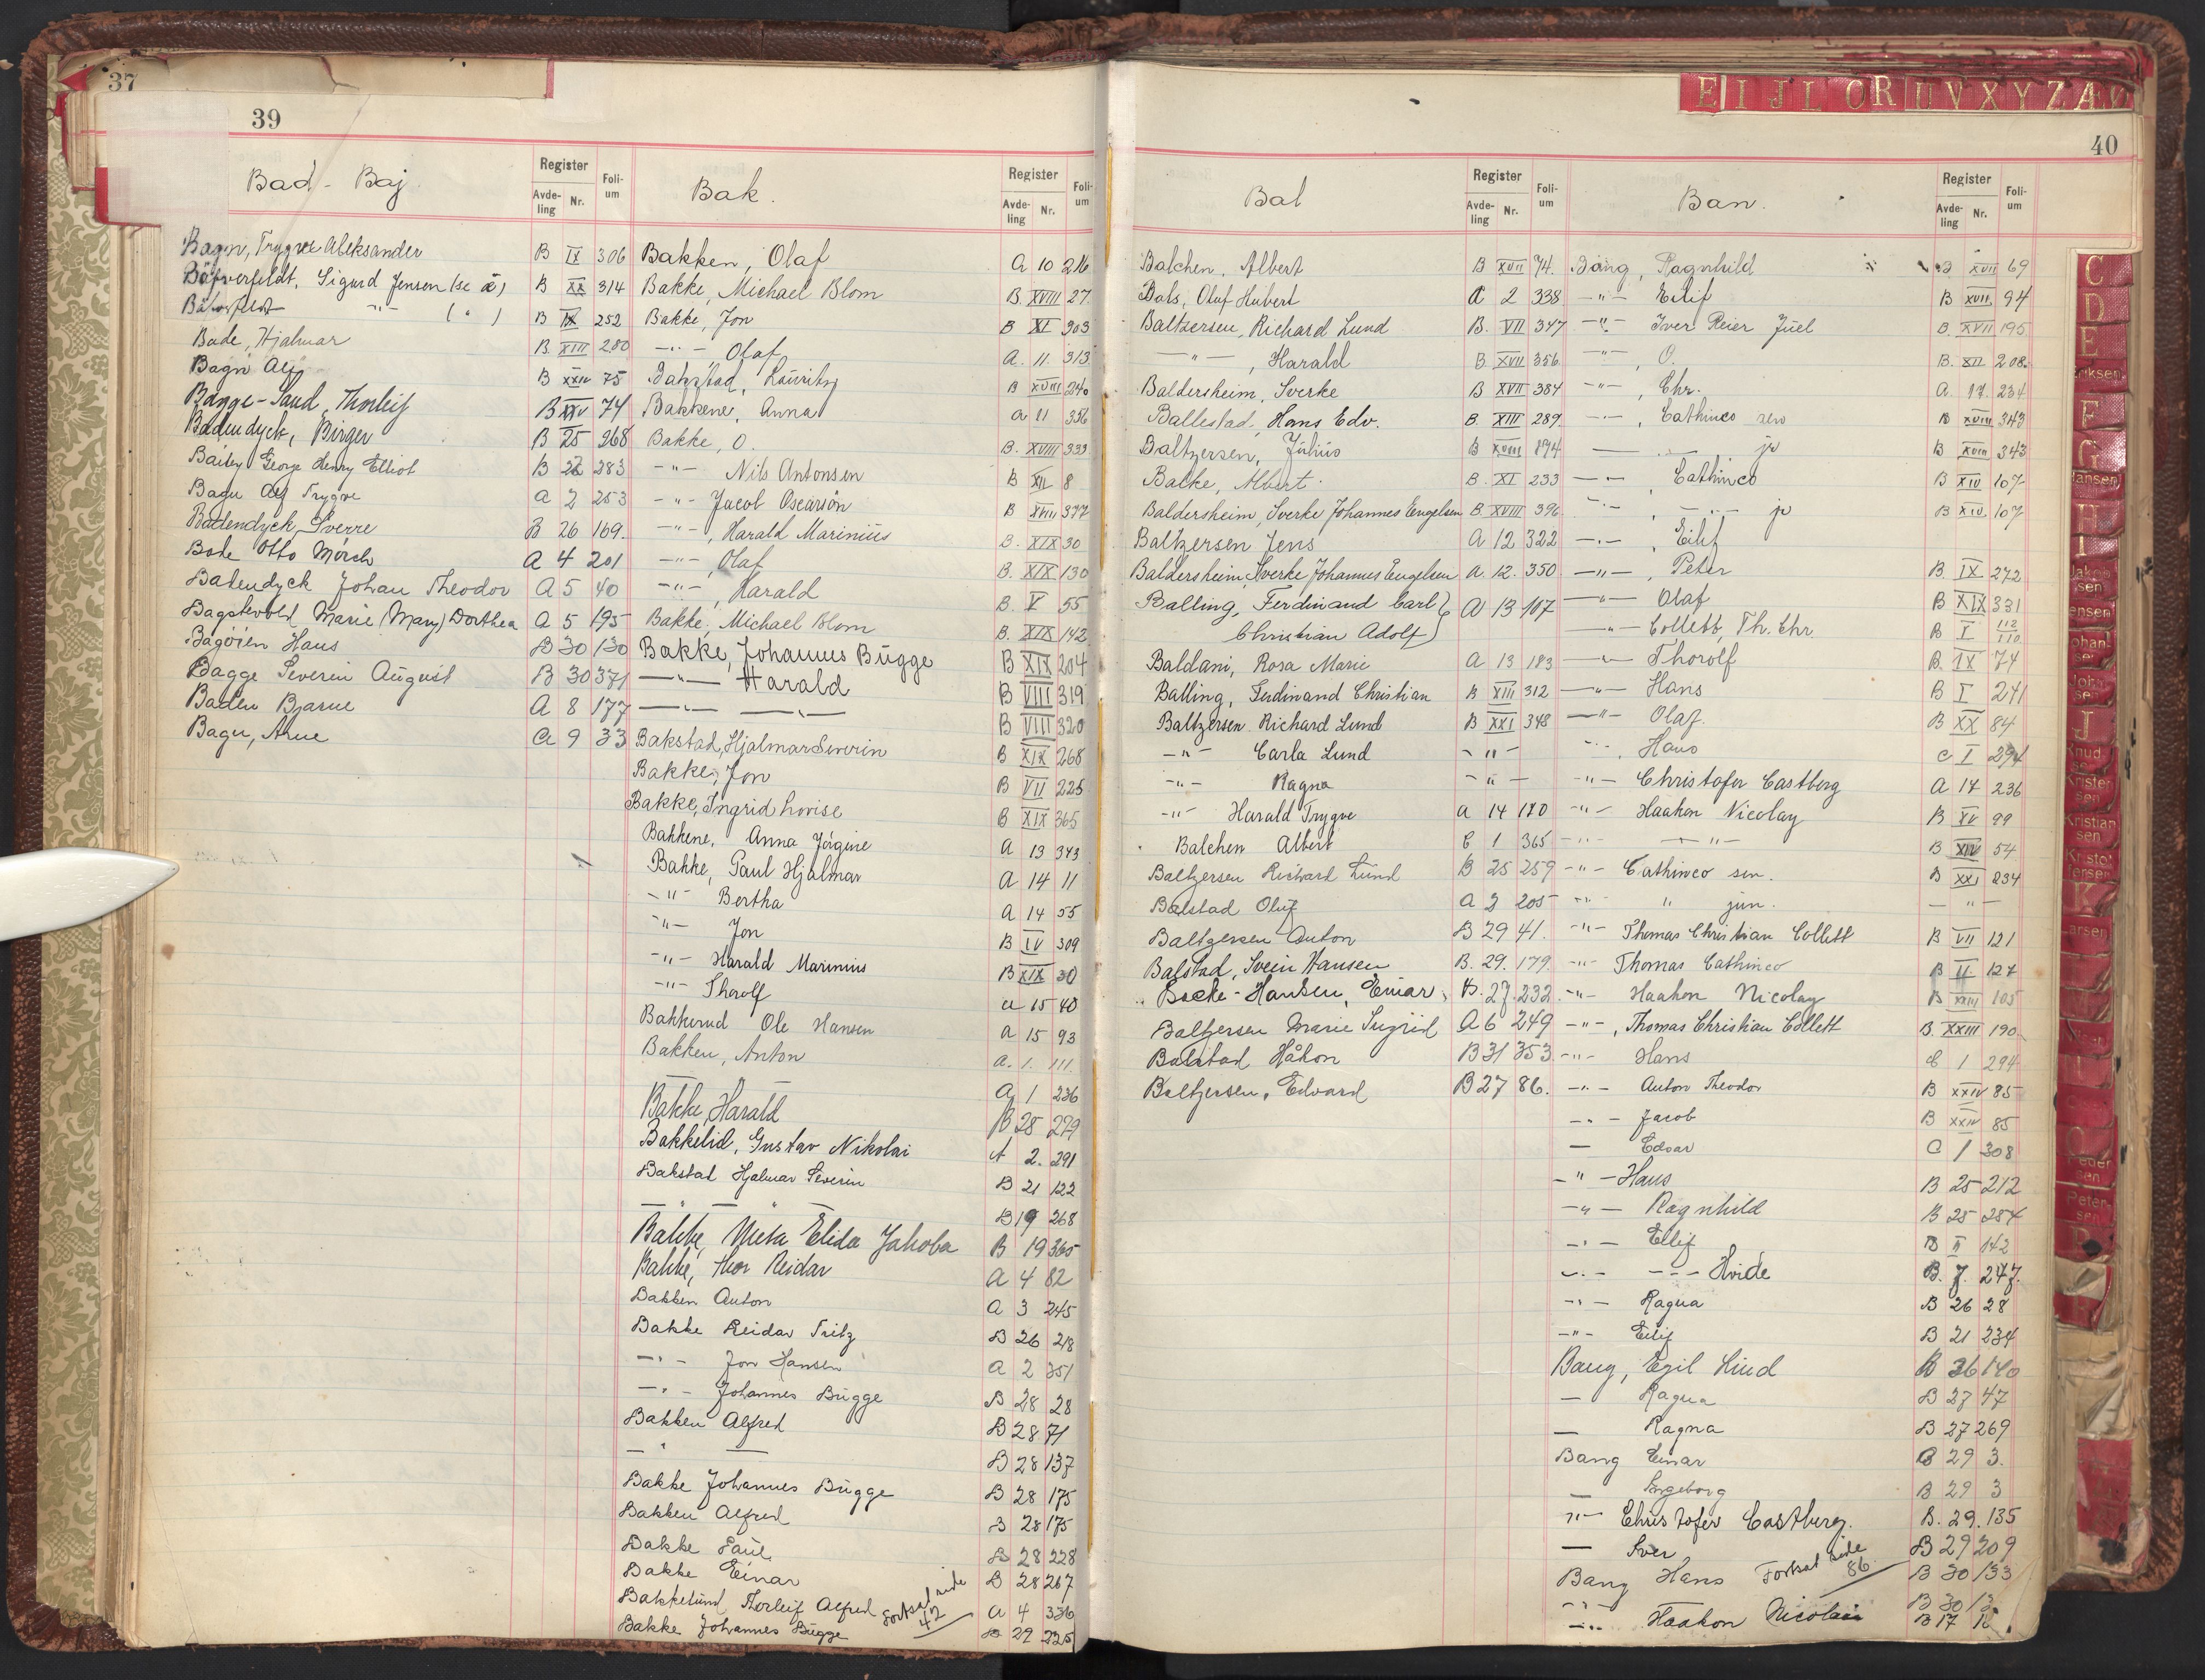 37
39
Bad - Baj
Register
Avde-ling
Nr.
Foli-um
Bagn, Trygve Aleksander B IX 306
Bäfverfeldt, Sigurd Jensen (se æ) B XX 314
Bäfverfeldt -"- ( " ) B IX 252
Bade, Hjalmar B. XIII 280
Bagn Alf B XXIV 75
Bagge-Saud, Thorleif B XXV 74
Badendyck, Birger B 25 268
Bailey George Henry Elliot B 26 283
Bagn Alf Trygve A 2 253
Badendyck, Sverre B 26 169.
Bade Otto Mörch A 4 201
Badendyck Johan Theodor A 5 40
Bagstevold Marie (Mary) Dorthea A 5 195
Bagöien Hans B 30 130
Bagge Severin August B 30 371
Baden Bjarne A 8 177
Bagn, Arne A 9 33
Bak.
Register
Avde-ling
Nr.
Foli-um
Bakken, Olaf A 10 216
Bakke, Michael Blom B. XVIII 27
Bakke, Jon B XI 303
-"- Olaf A. 11. 313
Bakstad, Lauritz B XVIII 240
Bakkene, Anna A 11 356
Bakke, O. B. XVIII 333
-"- Nils Antonsen B XII 8
-"- Jacob Oscarson B XVIII 377
-"-, Harald Marinius B. XIX 30
-"-, Olaf B. XIX 130
-"-, Harald B. V 55
Bakke, Michael Blom B. XIX 142
Bakke, Johannes Bugge B XIX 204
-"- Harald B VIII 319
-"- -"- B VIII 320
Bakstad, Hjalmar Severin B XIX 268
Bakke, Jon B VII 225
Bakke, Ingrid Lovise B XIX 365
Bakkene, Anna Jörgine A 13 343
Bakke, Paul Hjalmar A 14 11
-"- Bertha A 14 55
-"- Jon B IV 309
-"- Harald Marinius B XIX 30
-"- Thorolf A 15 40
Bakkerud Ole Hansen A 15 93
Bakken, Anton A. 1. 111.
— — A 1 236
Bakke, Harald B 28 279
Bakkelid, Gustav Nikolai A 2. 291
Bakstad Hjalmar Severin B 21 122
— " — " B 19 268
Bakke, Meta Elida Jakoba B 19 365
Bakke, Thor Reidar A 4 82
Bakken Anton A 3 245
Bakke Reidar Fritz B 26 218
-"- Jon Hansen A 2 351
-"- Johannes Bugge B 28 28
Bakken Alfred B 28 71
— " — B 28 137
Bakke Johannes Bugge B 28 175
Bakken Alfred B 28 175
Bakke Paul B 28 228
Bakke Einar B 28 267
Bakkelund, Thorleif Alfred A 4 336
Bakke Johannes Bugge B 29 225
Fortsat side 42
E I J L O R U V X Y Z Æ
40
Bal
Register
Avde-ling
Nr.
Foli-um
Balchen, Albert B XVII 74.
Bals, Oluf Hubert A 2 338
Baltzersen, Richard Lund B. VII 347
-"-, Harald B. XVII 356
Baldersheim, Sverke B XVII 384
Ballestad, Hans Edv. B. XIII 289
Baltzersen, Julius B XVIII 894
Balke, Albert B. XI 233
Baldersheim, Sverke Johannes Engelsen B XVIII 396
Baltzersen Jens A 12 322
Baldersheim, Sverke Johannes Engelsen A. 12. 350
Balling, Ferdinand Carl A 13 107
Christian Adolf
Baldani, Rosa Marie A 13 183
Balling, Ferdinand Christian B XIII 312
Baltzersen Richard Lund B XXI 348
-"- Carla Lund -"-
-"- Ragna -"-
-"- Harald Trygve A 14 180
Balchen Albert C 1 365
Baltzersen Richard Lund B 25 259
Balstad Oluf A 3 205
Baltzersen Anton B 29 41.
Balstad, Svein Hansen B. 29. 179.
Backe-Hansen, Einar B. 29. 232.
Baltzersen Marie Sigrid A 6 249
Balstad Håkon B 31 353
Baltzersen, Edvard B 27 86.
Ban.
Register
Avde-ling
Nr.
Foli-um
Bang, Ragnhild B XVII 69
-"- Eilif B XVII 94
-"- Iver Reier Juel B. XVII 195
-"-, O. B. XII 208.
-"-, Chr. A. 17. 234
-"-, Cathinco sen B XVIII 343
— — jr B XVIII 343
-"-, Cathinco B XIV 107
-"-, -"- jr B XIV 107
-"-, Eilif
-"-, Peter B. IX 272
-"- Olaf B XIX 331
-"- Collett, Th. Chr. B I 112 110
-"- Thorolf B. IX 74
-"- Hans B I 241
-"- Olaf. B XX 84
-"- Hans C I 294
-"- Christofer Castberg A 17 236
-"- Haakon Nicolay B XV 99
-"- -"- B XIV 54
-"- Cathinco sen. B XXI 234
-"- " jun. — " —
-"- Thomas Christian Collett B VII 121
-"- Thomas Cathinco B II 127
-"- Haakon Nicolay B XXIII 105
-"-, Thomas Christian Collett B. XXIII 190
-"- Hans C 1 294
-"- Anton Theodor B XXIV 85
-"- Jacob B XXIV 85
— Edvar C 1 308
-"- Hans B 25 212
-"- Ragnhild B 25 284
-"- Eilif B II 142
-"- --- Hvide B. 7. 247.
-"- Ragna B 26 28
-"- Eilif B 21 234
Bang, Egil Hind B 26 140
— Ragna B 27 47
— Ragna B 27 269
Bang Einar B 29 3.
— Ingeborg B 29 3
-"- Christofer Castberg. B. 29. 135
— Iver B 29 209
Bang Hans B 30 133
-"- B 30 13
-"- Haakon Nicolai B 17 12
Fortsat side 86
C
D
E
Eriksen
F
G
Hansen
H
I
Jakob sen
Jensen
Johan sen
John sen
J
Knud sen
Krister sen
Kristian sen
Kristof fersen
K
Larsen
Peder sen
Peter sen